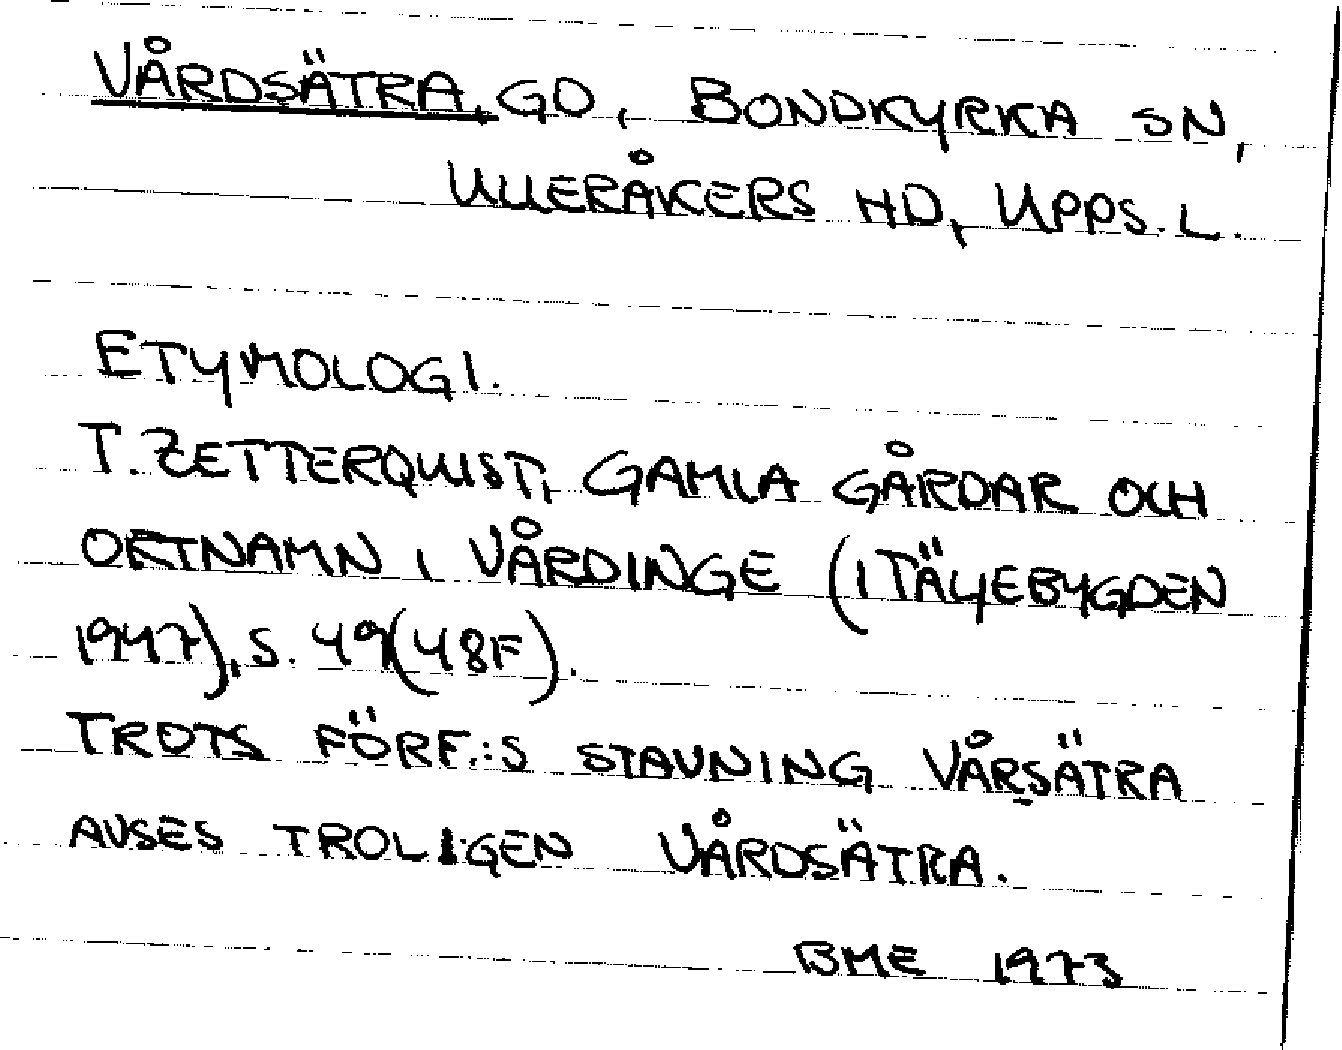 VÅRDSÄTRA, GD, BONDKYRKA SN,
ULLERÅKERS HD, UPPS. L.
ETYMOLOGI.
T. ZETTERQUIST, GAMLA GÅRDAR OCH
ORTNAMN I VÅRDINGE (I TÄLJEBYGDEN
1947), S. 49 (48F).
TROTS FÖRF.:S STAVNING VÅRSÄTRA
AVSES TROLIGEN VÅRDSÄTRA.
BME 1973